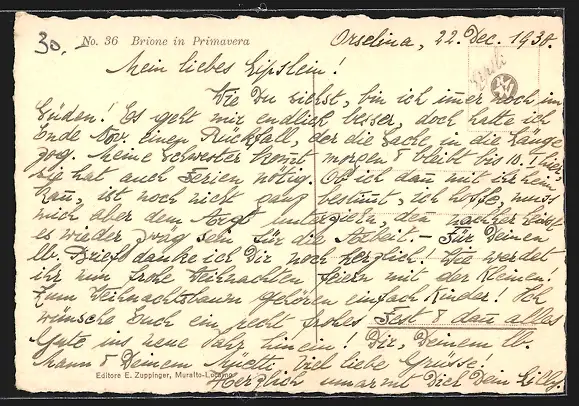 30.
No. 36 Brione in Primavera
Orselina, 22. Dec. 1938.
Mein liebes Eipslein!
Wie Du siehst, bin ich immer noch im
Süden! Es geht mir endlich besser, doch hatte ich
Ende Nov. einen Rückfall, der die Sache in die Länge
zog. Meine Schwester kommt morgen & bleibt bis 10. I. hier,
sie hat auch Ferien nötig. Ob ich dann mit ihr heim
kann, ist noch nicht ganz bestimmt, ich hoffe, muss
mich aber dem Arzt unterziehn, denn nachher
es wieder zwäg sein für die Arbeit. – Für Deinen
lb. Brief danke ich Dir noch herzlich! Wie werdet
ihr nun frohe Weihnachten feiern mit der Kleinen!
Zum Weihnachtsbaum gehören einfach Kinder! Ich
wünsche Euch ein recht frohes Fest & dann alles
Gute ins neue Jahr hinein! Dir, Deinem lb.
Mann & Deinem Müetti viel liebe Grüsse!
Editore E. Zuppinger, Muralto-Locarno
Herzlich umarmt Dich Dein Lilly.